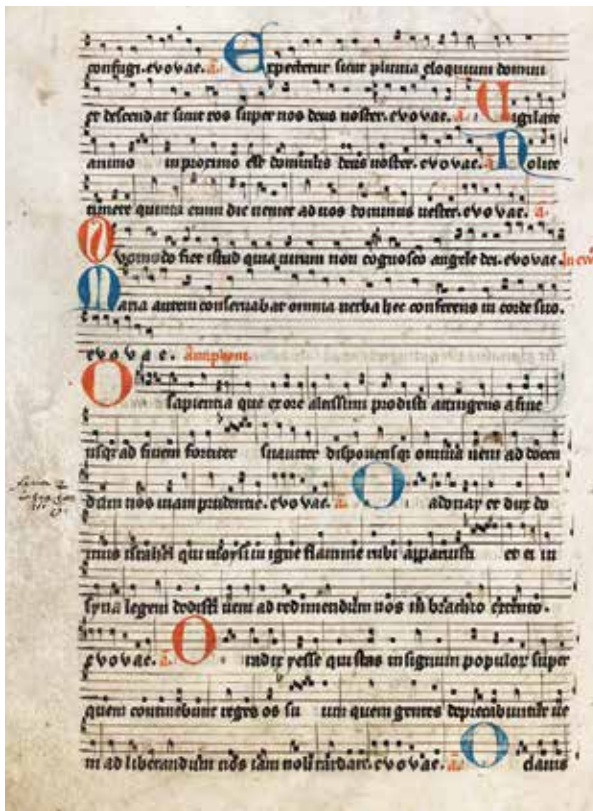 confugi. evovae. a. Expectetur sicut pluvia eloquium domini
et descendat sicut ros super nos deus noster. evovae. a. Vigilate
animo in proximo est dominus deus noster. evovae. a Nolite
timere quinta enim die veniet ad nos dominus vester. evovae. a.
Quomodo fiet istud quia virum non cognosco angele dei. evovae. In
Maria autem conservabat omnia verba hec conferens in corde suo.
evovae. Antiphone.
O sapientia que ex ore altissimi prodisti attingens a fine
usq ad finem fortiter suaviter disponensq omnia veni ad docen
dum nos viam prudentie. evovae. a. O adonay et dux do
mus israhel qui moysi in igne flamme rubi apparuisti et ei in
syna legem dedisti veni ad redimendum nos in brachio extento.
evovae. a. O radix yesse qui stas in signum populor super
quem continebunt reges os su um quem gentes deprecabuntur ve
ni ad liberandum nos iam noli tardare. evovae. a. O clavis